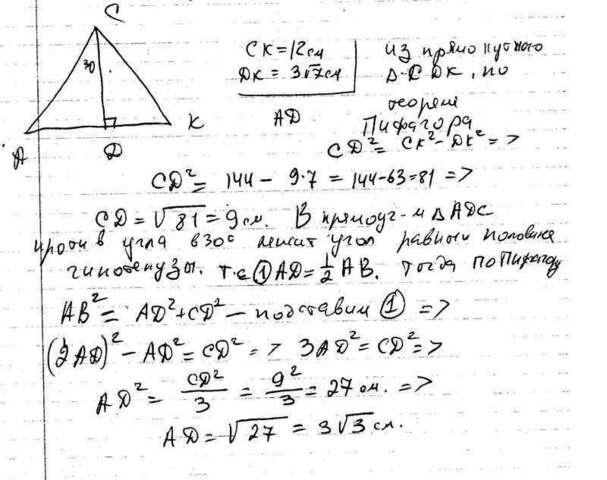 C
30
A
D
K
CK = 12 см
DK = 3√7 см
AD
из прямоугольного
Δ CDK, по
теореме
Пифагора
CD² = CK² - DK² =>
CD² = 144 - 9·7 = 144-63=81 =>
CD = √81 = 9 см. В прямоуг-м Δ ADC
против угла в 30° лежит угол равный половине
гипотенузы. т.е ① AD = 1/2 AB. Тогда по Пифагору
AB² = AD² + CD² - подставим ① =>
(2AD)² - AD² = CD² => 3AD² = CD² =>
AD² = CD²/3 = 9²/3 = 27 см. =>
AD = √27 = 3√3 см.